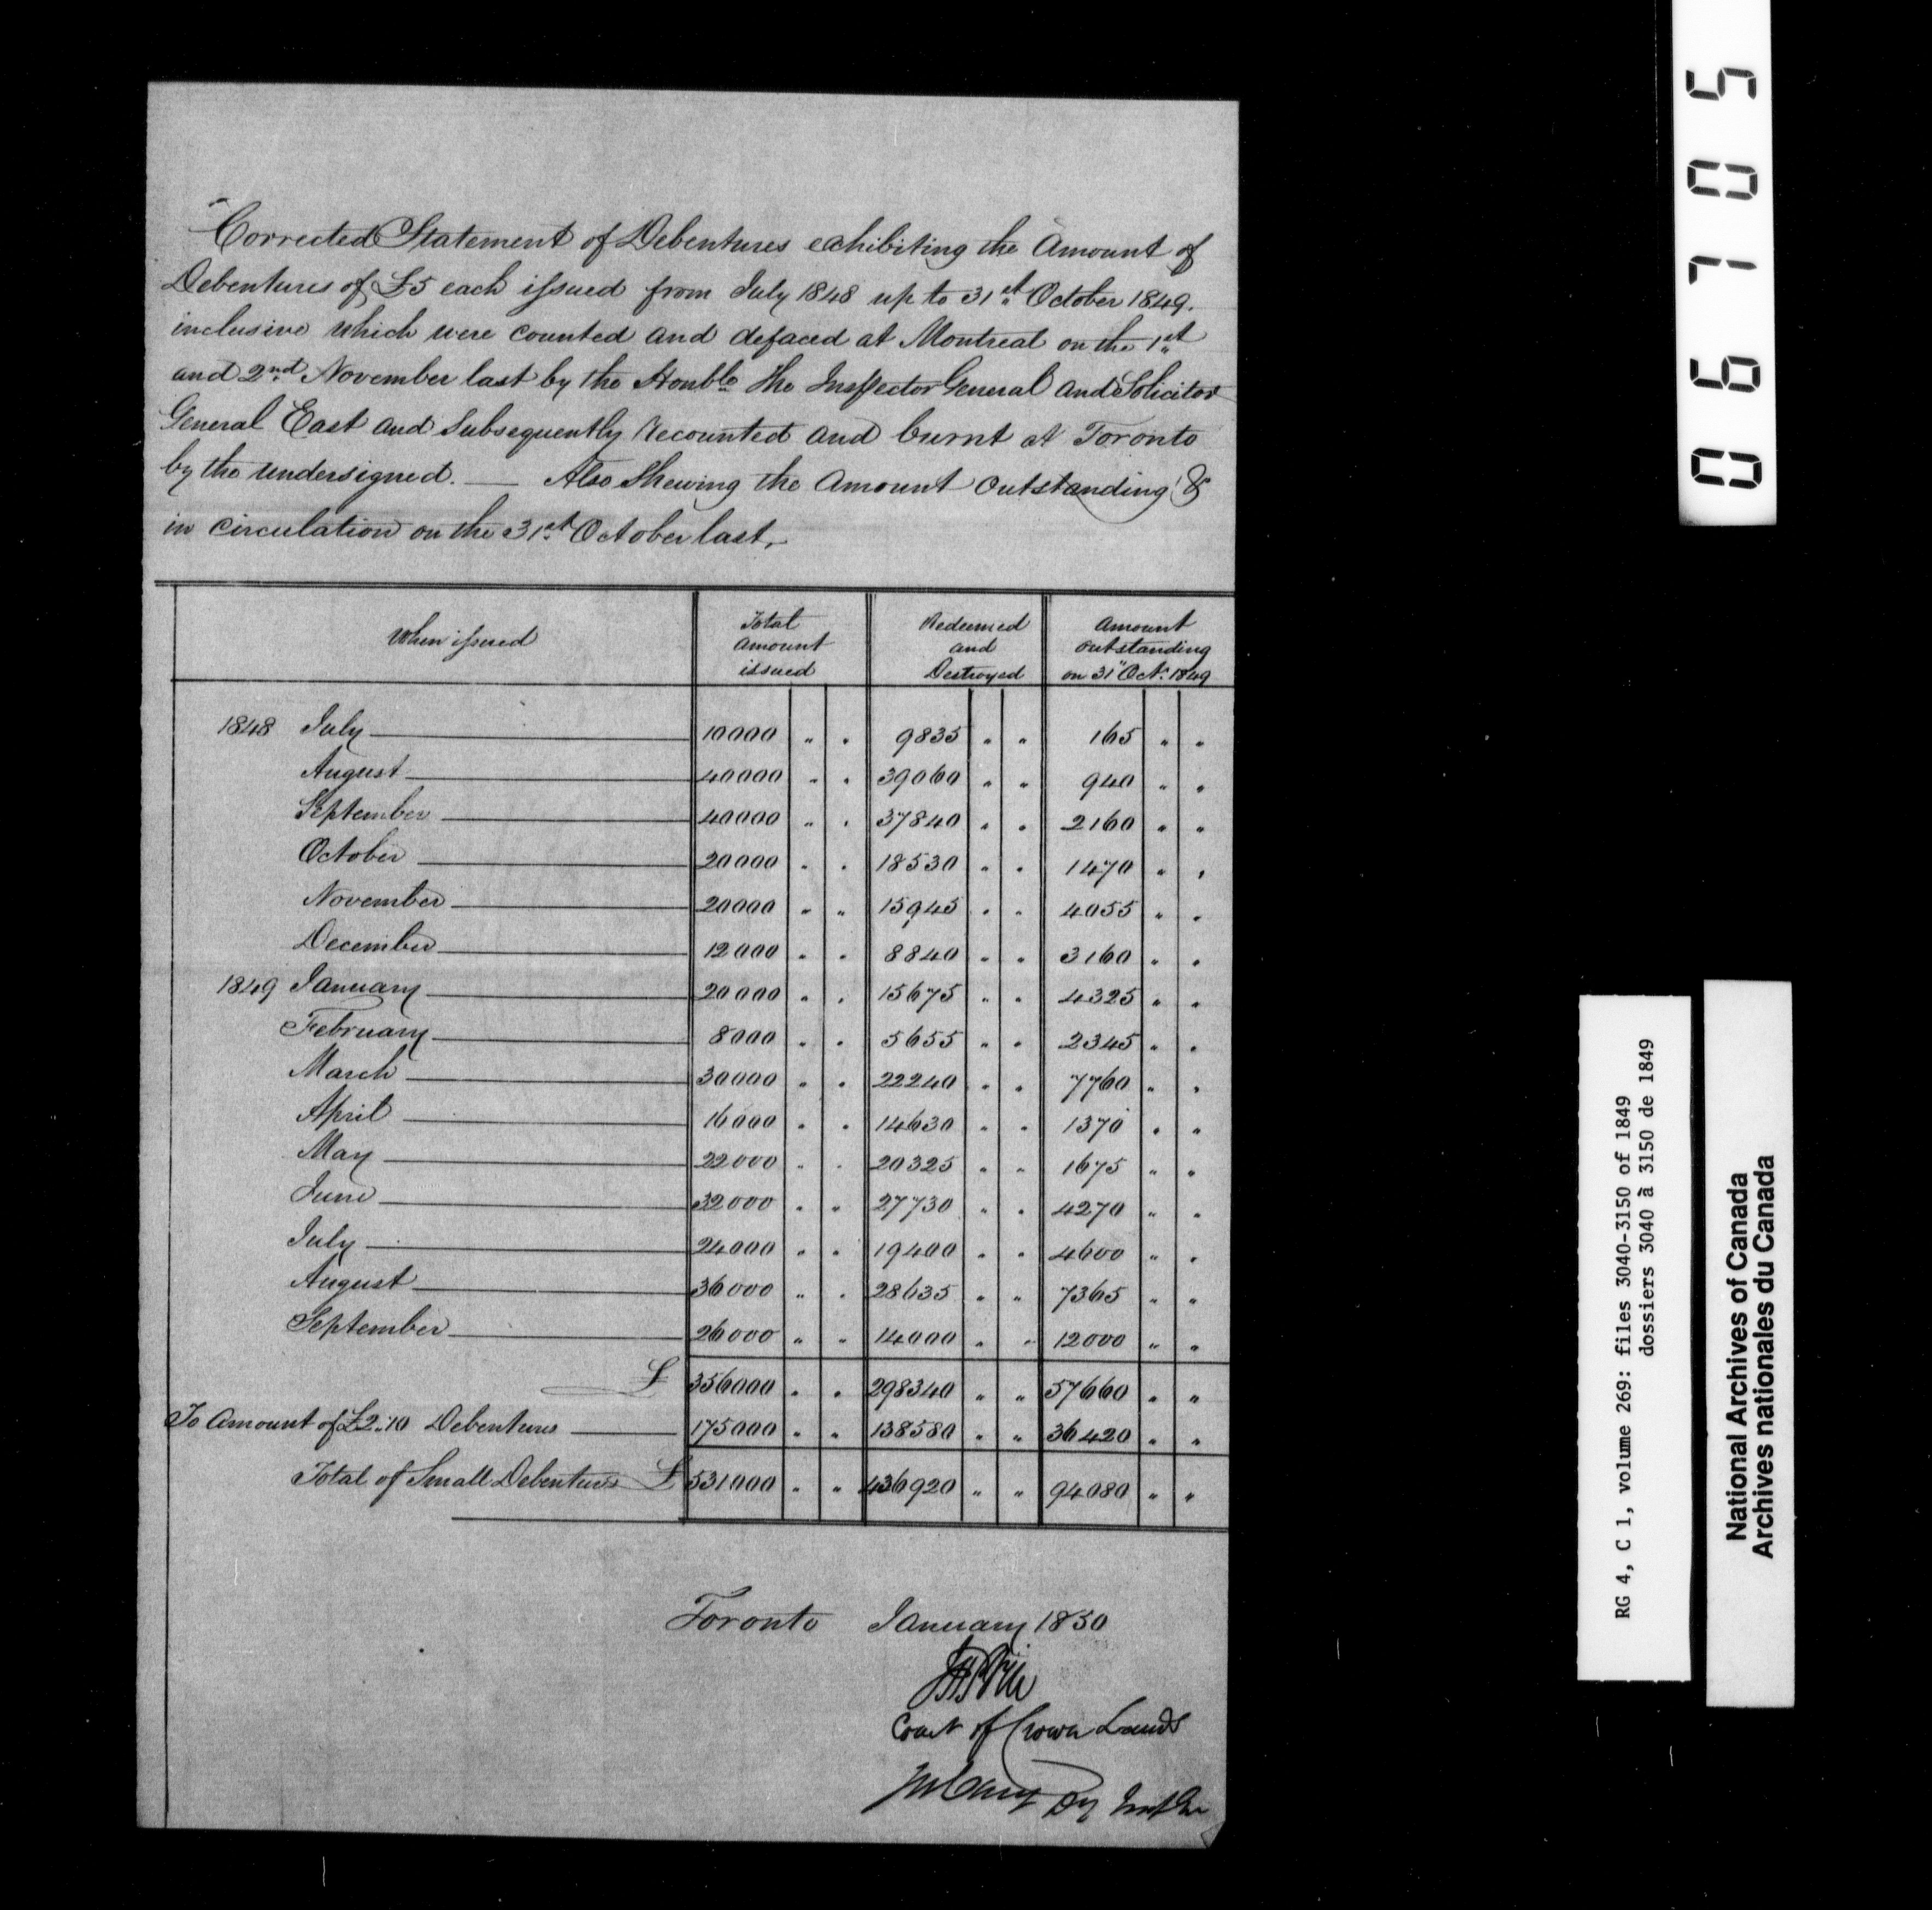 Corrected Statement of Debentures exhibiting the Amount of
Debentures of £5 each issued from July 1848 up to 31st October 1849.
inclusive which were counted and defaced at Montreal on the 1st
and 2nd November last by the Honble The Inspector General and Solicitor
General East and Subsequently recounted and burnt at Toronto
by the undersigned. — Also Shewing the Amount Outstanding &
in circulation on the 31st October last,
When issued | Total amount issued | Redeemed and Destroyed | Amount outstanding on 31" Oct. 1849
1848 July 10000 " " 9835 " " 165 " "
August 40000 " " 39060 " " 940 " "
September 40000 " " 37840 " " 2160 " "
October 20000 " " 18530 " " 1470 " "
November 20000 " " 15945 " " 4055 " "
December 12000 " " 8840 " " 3160 " "
1849 January 20000 " " 15675 " " 4325 " "
February 8000 " " 5655 " " 2345 " "
March 30000 " " 22240 " " 7760 " "
April 16000 " " 14630 " " 1370 " "
May 22000 " " 20325 " " 1675 " "
June 32000 " " 27730 " " 4270 " "
July 24000 " " 19400 " " 4600 " "
August 36000 " " 28635 " " 7365 " "
September 26000 " " 14000 " " 12000 " "
£ 356000 " " 298340 " " 57660 " "
To Amount of £2.10 Debentures 175000 " " 138580 " " 36420 " "
Total of Small Debentures £ 531000 " " 436920 " " 94080 " "
Toronto January 1850
of Crown Lands
Cary Dy
06705
RG 4, C 1, volume 269: files 3040-3150 of 1849
dossiers 3040 à 3150 de 1849
National Archives of Canada
Archives nationales du Canada